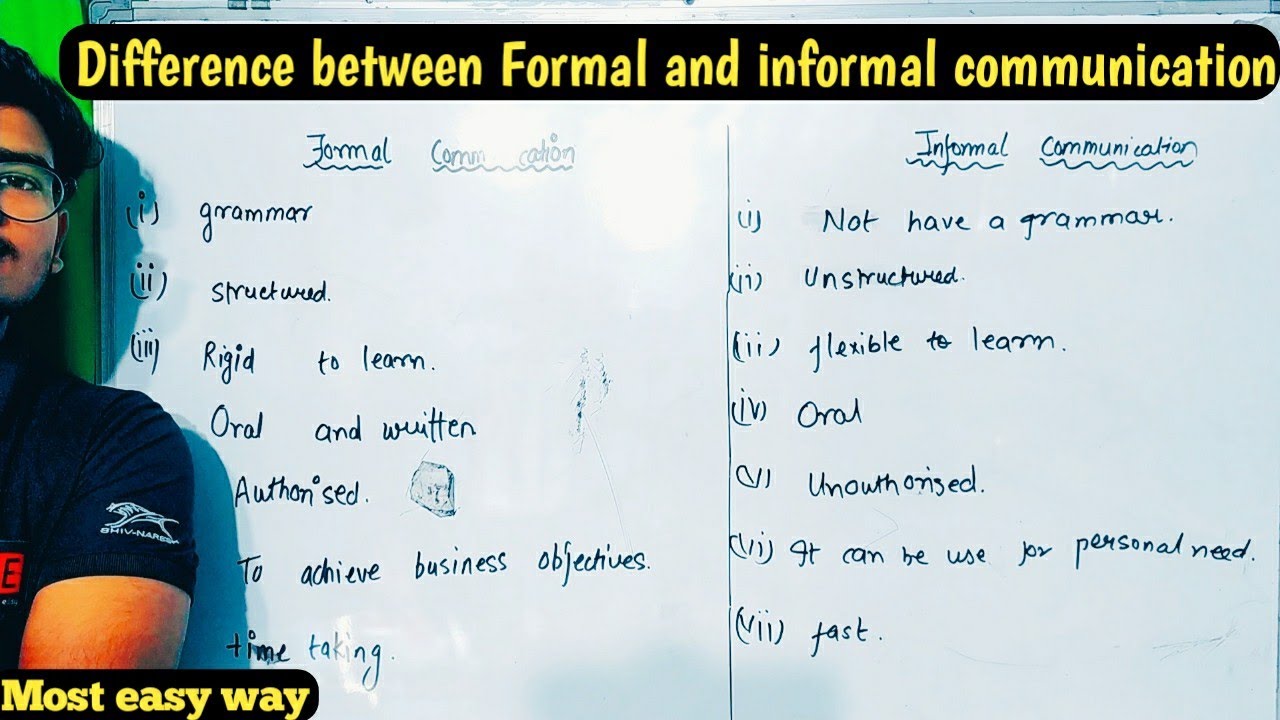 Difference between Formal and informal communication
Formal Comm cation
(i) grammar
(ii) structured.
(iii) Rigid to learn.
Oral and written
Authorised.
To achieve business objectives.
time taking.
Informal Communication
(i) Not have a grammar.
(ii) Unstructured.
(iii) flexible to learn.
(iv) Oral
(v) Unouthorised.
(vi) It can be use for personal need.
(vii) fast.
SHIV-NARESH
E
Most easy way